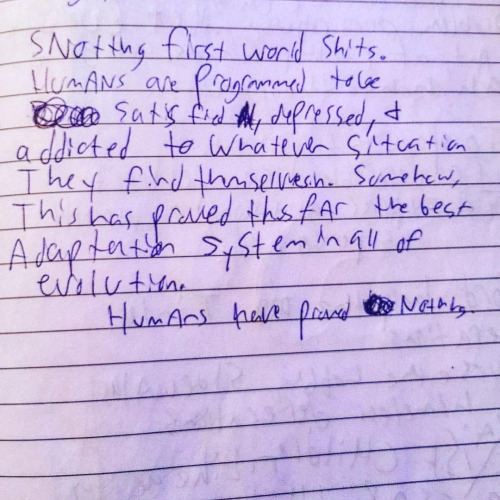 SNotting first world shits.
Humans are programmed to be
satisfied, depressed, &
addicted to whatever situation
They find themselves in. Somehow,
This has proved thus far the best
Adaptation system in all of
evolution.
Humans have proved Nothing.